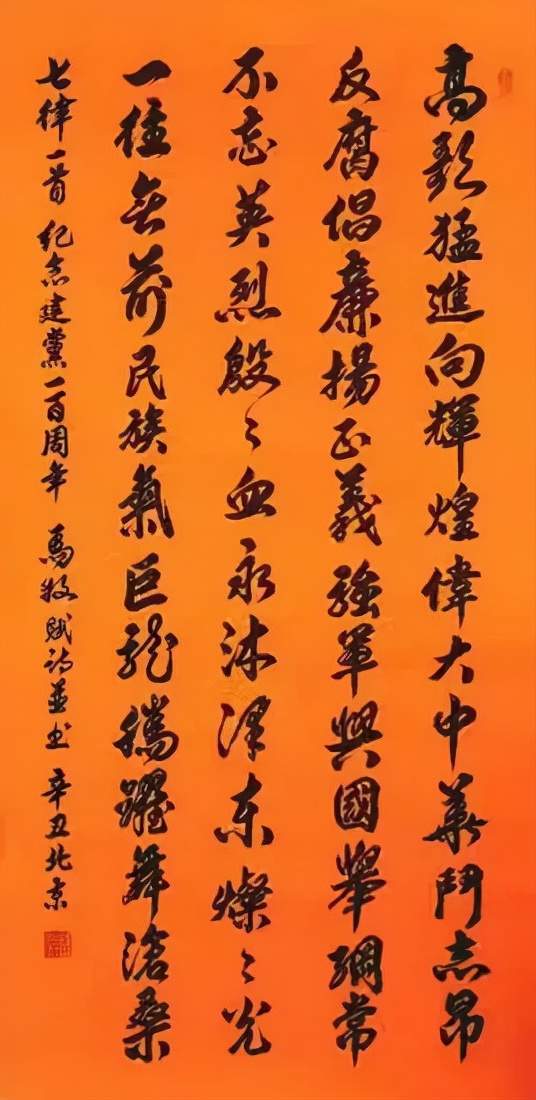 高歌猛進向輝煌偉大中華鬥志昂
反腐倡廉揚正義強軍興國舉綱常
不忘英烈殷〻血永沐澤东燦〻光
一往無前民族氣巨龍騰躍舞滄桑
七律一首 纪念建黨一百周年 馬牧賦詩並书 辛丑北京